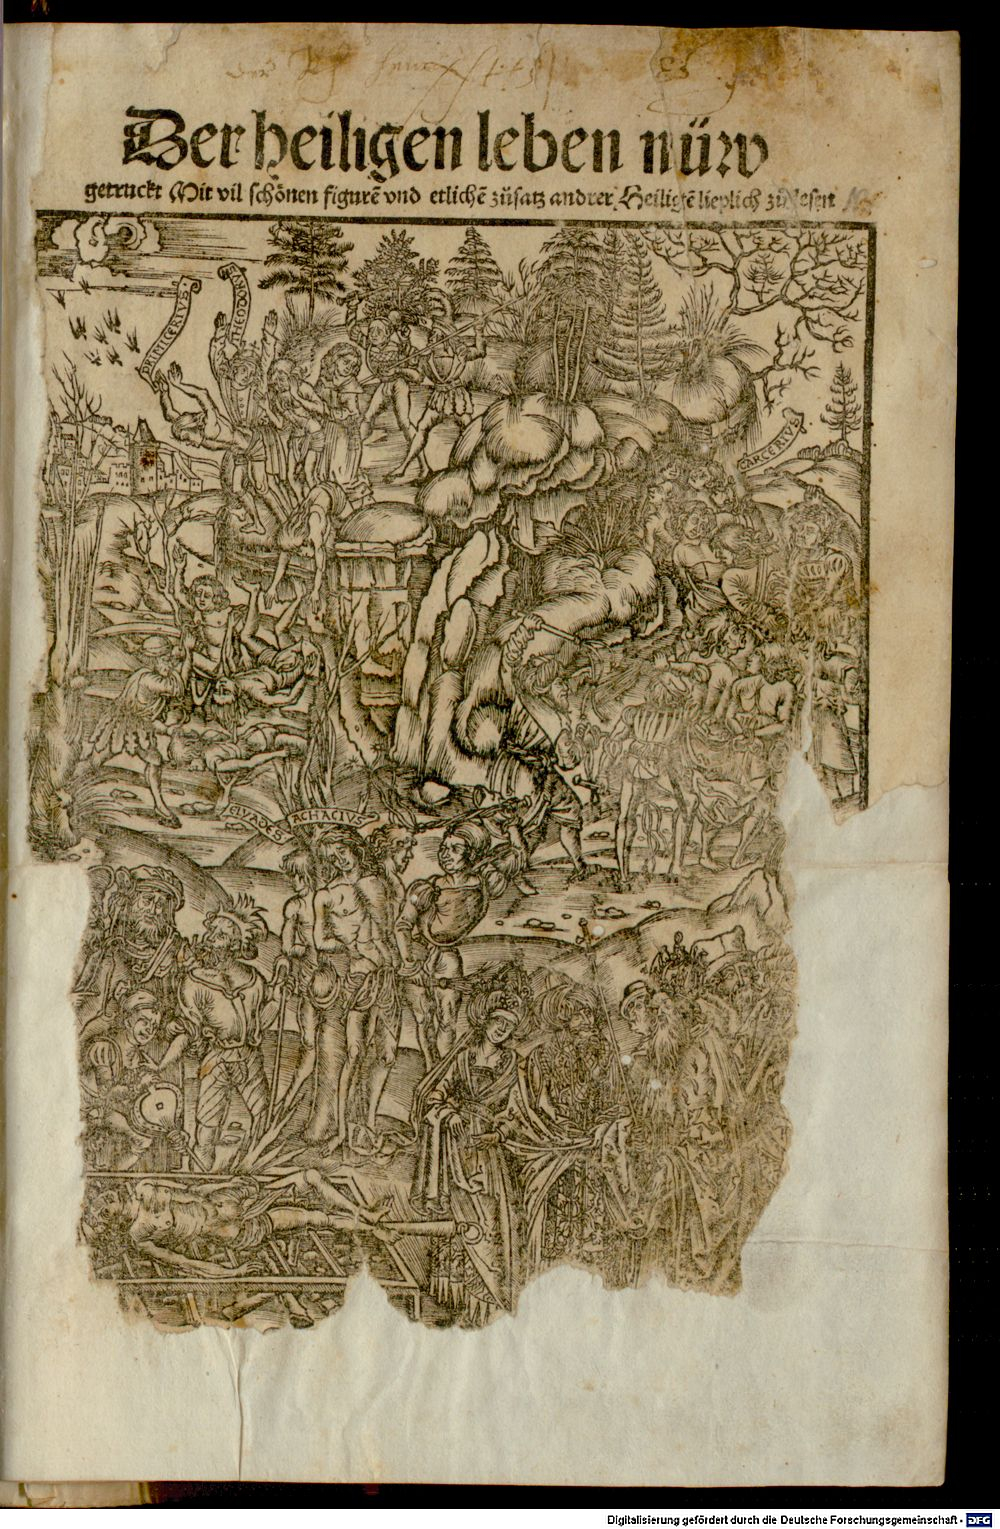 Der heiligen leben nüw
getruckt Mit vil schönen figurē vnd etlichē zůsatz andrer Heiligē lieplich zů lesen
PRIMICERIVS
THEODORVS
CARCERIVS
ELYADES
ACHACIVS
Digitalisierung gefördert durch die Deutsche Forschungsgemeinschaft - DFG